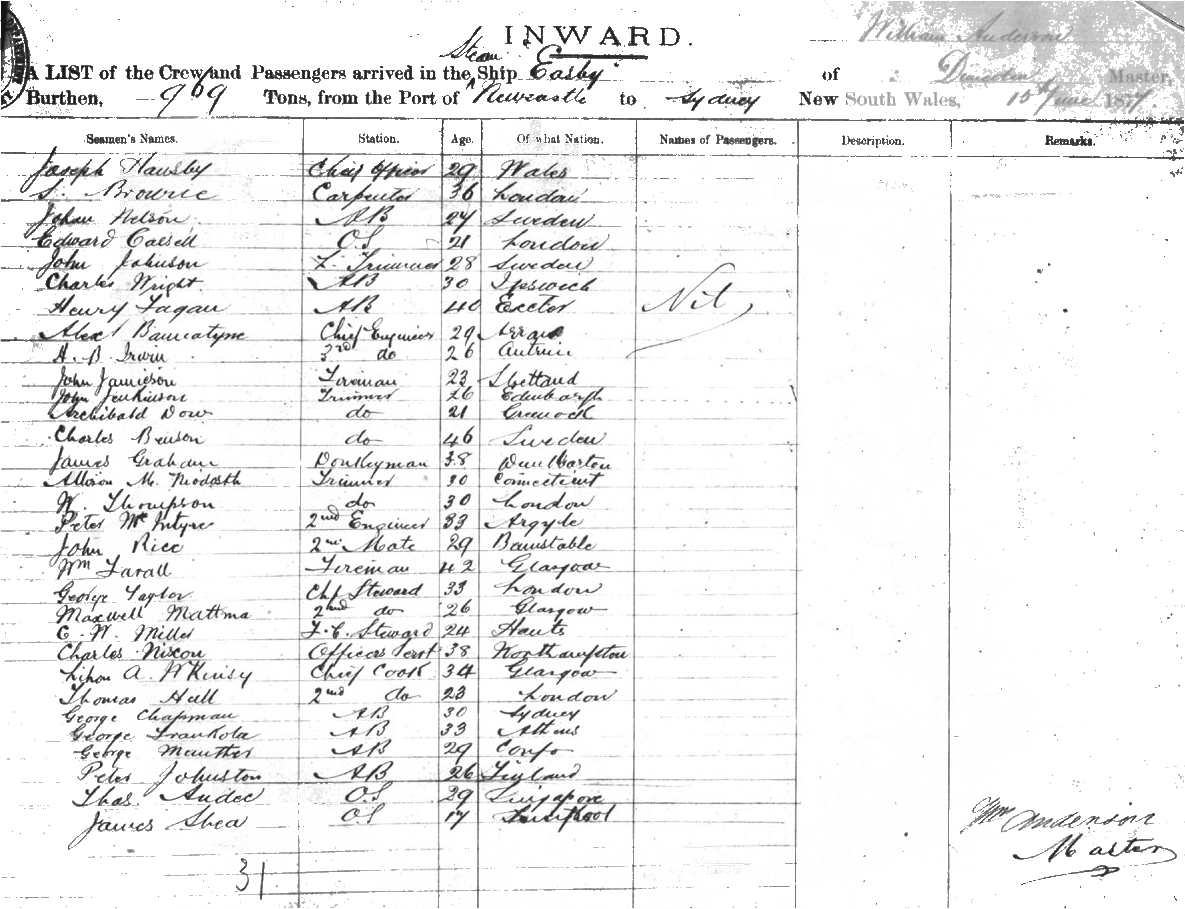 INWARD.
William Anderson
Steam
A LIST of the Crew and Passengers arrived in the Ship Easby of Dunedin Master,
Burthen, 969 Tons, from the Port of Newcastle to Sydney New South Wales, 15th June 1877.
Seamen's Names. Station. Age. Of what Nation. Names of Passengers. Description. Remarks.
Joseph Chief Officer 29 Wales
S. Browne Carpenter 36 London
Johan Nelson AB 27 Sweden
Edward O.S 21 London
John Johnson F. Trimmer 28 Sweden
Charles Wright AB 30 Ipswich
Henry Fagan AB 40 Exeter Nil
Alex Bannatyne Chief Engineer 29 Arran
H. B. Irwin 3rd do 26 Antrim
John Jamieson Fireman 23 Shetland
John Jenkinson Trimmer 26 Edinburgh
Archibald Dow do 21 Greenock
Charles Benson do 46 Sweden
James Graham Donkeyman 38 Dumbarton
M. Trimmer 30 Connecticut
W Thompson do 30 London
Peter McIntyre 2nd Engineer 33 Argyle
John Rice 2nd Mate 29 Barnstable
Wm Farall Fireman 42 Glasgow
George Taylor Chf Steward 33 London
Maxwell Mattma 2nd do 26 Glasgow
C. W. Miller F. C. Steward 24 Hants
Charles Nixon Officers Servt 38 Northampton
A. Chief Cook 34 Glasgow
Thomas Hall 2nd do 23 London
George Chapman AB 30 Sydney
George Frankola AB 33 Athens
George Manther AB 29 Corfo
Peter Johnston AB 26 Finland
Thos. Andee O.S 29 Singapore
James Shea O.S 17 Liverpool
Wm Anderson
Master
31